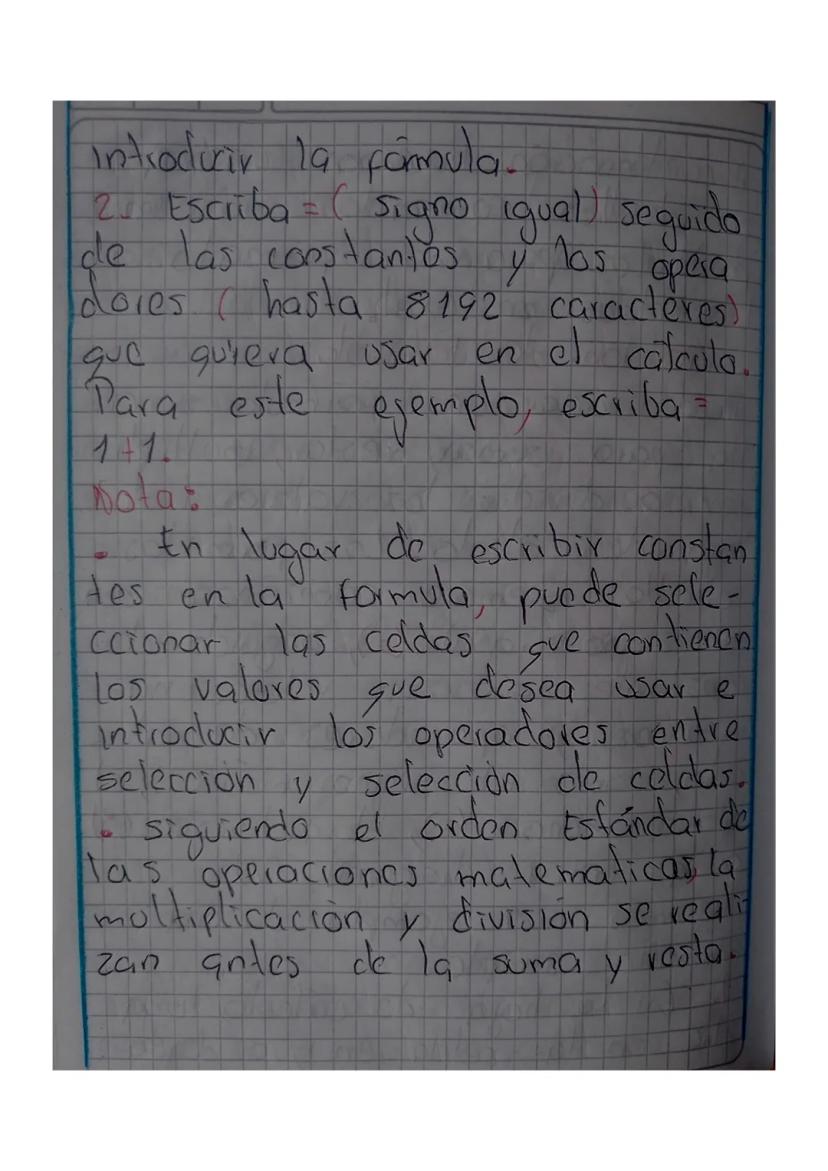 introducir la fórmula.
2. Escriba = ( signo igual) seguido
de las constantes y los opera
dores ( hasta 8192 caracteres)
que quiera usar en el cálculo.
Para este ejemplo, escriba =
1+1.
Nota:
• En lugar de escribir constan
tes en la formula, puede sele-
ccionar las celdas que contienen
los valores que desea usar e
introducir los operadores entre
selección y selección de celdas.
• siguiendo el orden Estándar de
las operaciones matematicas, la
multiplicación y división se reali
zan antes de la suma y resta.